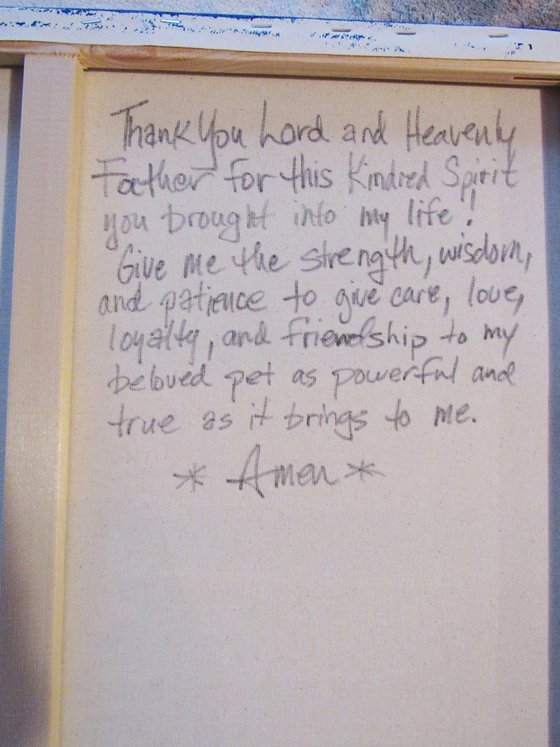 Thank You Lord and Heavenly
Father for this Kindred Spirit
you brought into my life!
Give me the strength, wisdom,
and patience to give care, love,
loyalty, and friendship to my
beloved pet as powerful and
true as it brings to me.
* Amen *